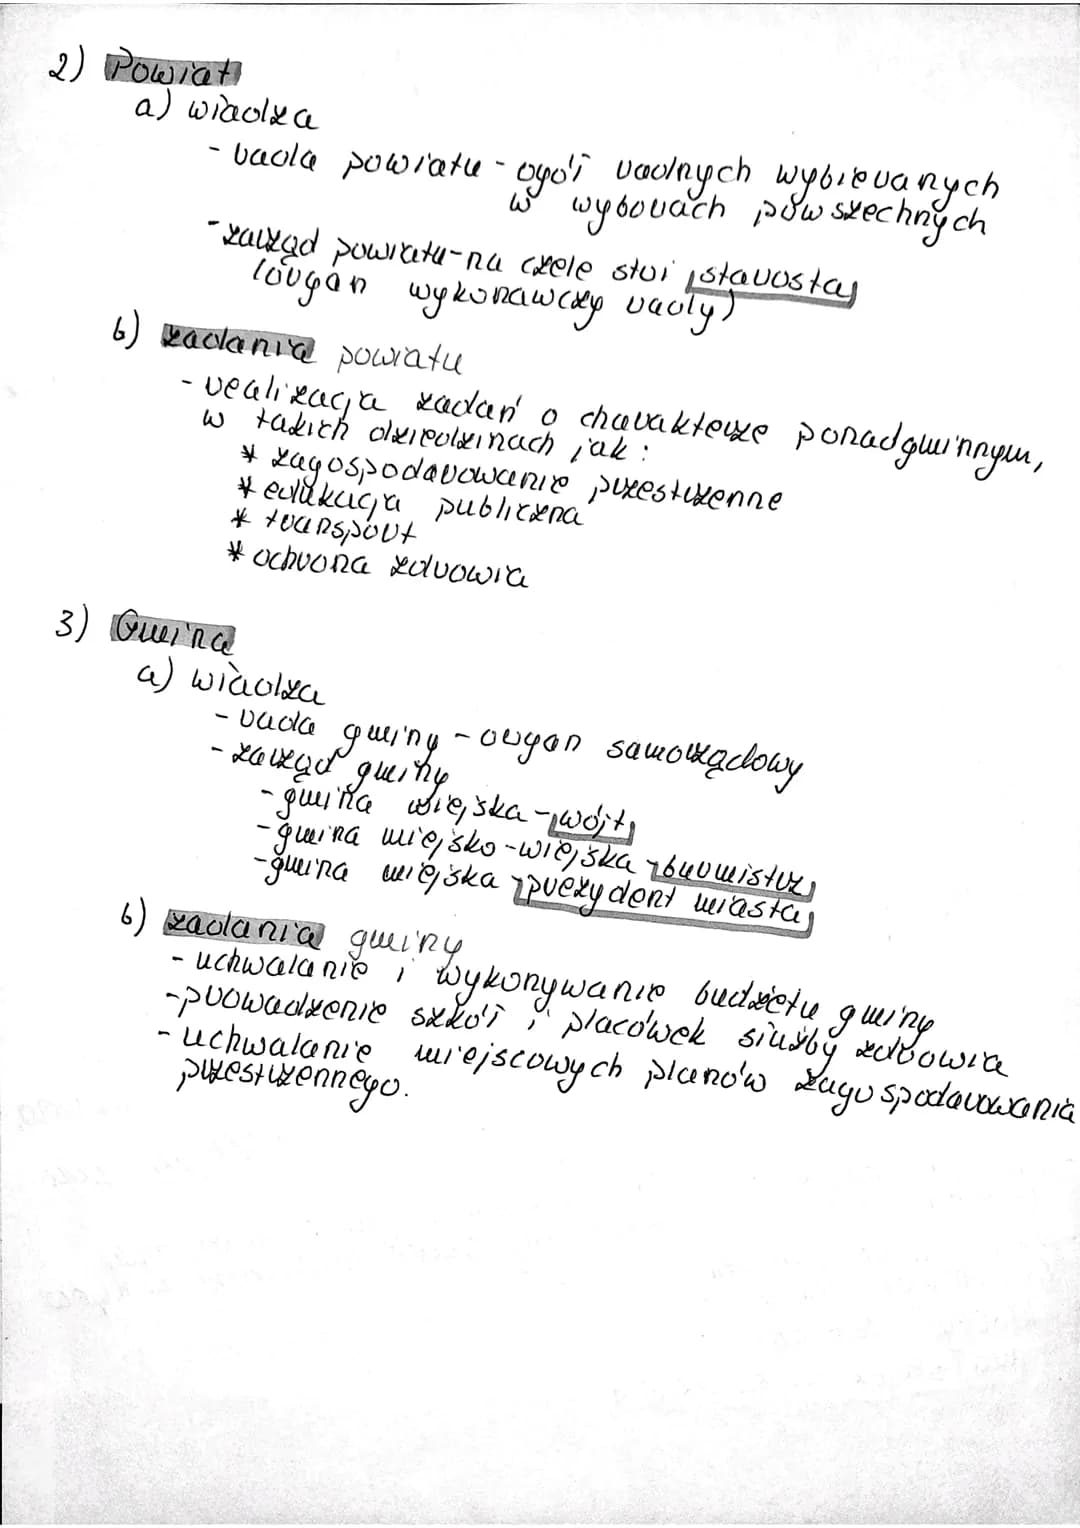 2) Powiat
a) władza
- rada powiatu - ogół radnych wybieranych
w wyborach powszechnych
- zarząd powiatu - na czele stoi starosta
(organ wykonawczy rady)
b) zadania powiatu
- realizacja zadań o charakterze ponadgminnym,
w takich dziedzinach jak:
* zagospodarowanie przestrzenne
* edukacja publiczna
* transport
* ochrona zdrowia
3) Gmina
a) władza
- rada gminy - organ samorządowy
- zarząd gminy
- gmina wiejska - wójt
- gmina miejsko-wiejska - burmistrz
- gmina miejska - prezydent miasta
b) zadania gminy
- uchwalanie i wykonywanie budżetu gminy
- prowadzenie szkół i placówek służby zdrowia
- uchwalanie miejscowych planów zagospodarowania
przestrzennego.